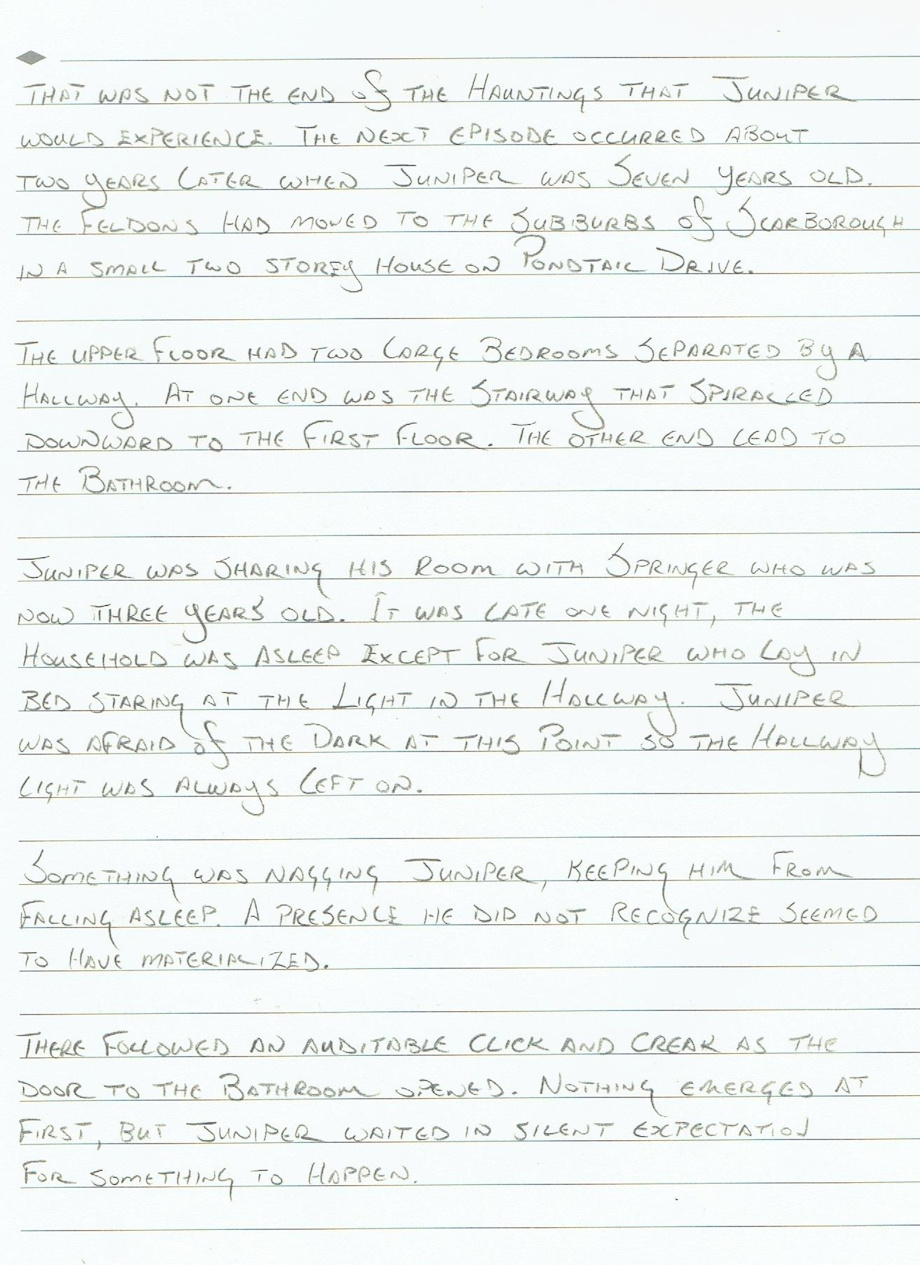 THAT WAS NOT THE END of THE HAUNTINGS THAT JUNIPER
WOULD EXPERIENCE. THE NEXT EPISODE OCCURRED ABOUT
TWO YEARS LATER WHEN JUNIPER WAS SEVEN YEARS OLD.
THE FELDONS HAD MOVED TO THE SUBBURBS of SCARBOROUGH
IN A SMALL TWO STOREY HOUSE ON PONDTAIL DRIVE.
THE UPPER FLOOR HAD TWO LARGE BEDROOMS SEPARATED BY A
HALLWAY. AT ONE END WAS THE STAIRWAY THAT SPIRALLED
DOWNWARD TO THE FIRST FLOOR. THE OTHER END LEAD TO
THE BATHROOM.
JUNIPER WAS SHARING HIS ROOM WITH SPRINGER WHO WAS
NOW THREE YEARS OLD. IT WAS LATE ONE NIGHT, THE
HOUSEHOLD WAS ASLEEP EXCEPT FOR JUNIPER WHO LAY IN
BED STARING AT THE LIGHT IN THE HALLWAY. JUNIPER
WAS AFRAID of THE DARK AT THIS POINT SO THE HALLWAY
LIGHT WAS ALWAYS LEFT ON.
SOMETHING WAS NAGGING JUNIPER, KEEPING HIM FROM
FALLING ASLEEP. A PRESENCE HE DID NOT RECOGNIZE SEEMED
TO HAVE MATERIALIZED.
THERE FOLLOWED AN AUDITABLE CLICK AND CREAK AS THE
DOOR TO THE BATHROOM OPENED. NOTHING EMERGED AT
FIRST, BUT JUNIPER WAITED IN SILENT EXPECTATION
FOR SOMETHING TO HAPPEN.